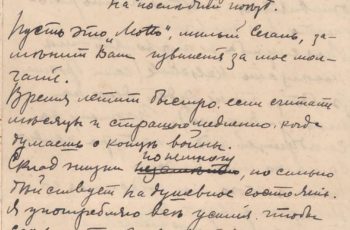 на последний покут.
Пусть это "Motto", милый Евгань, за-
менит Вам чувинента за мое мол-
чание.
Время летит быстро, если считать
месяцы и страшно медленно, когда
думаешь о конце войны.
Склад жизни понемногу, но сильно
действует на душевное состояние.
Я употребляю все усилия, чтобы